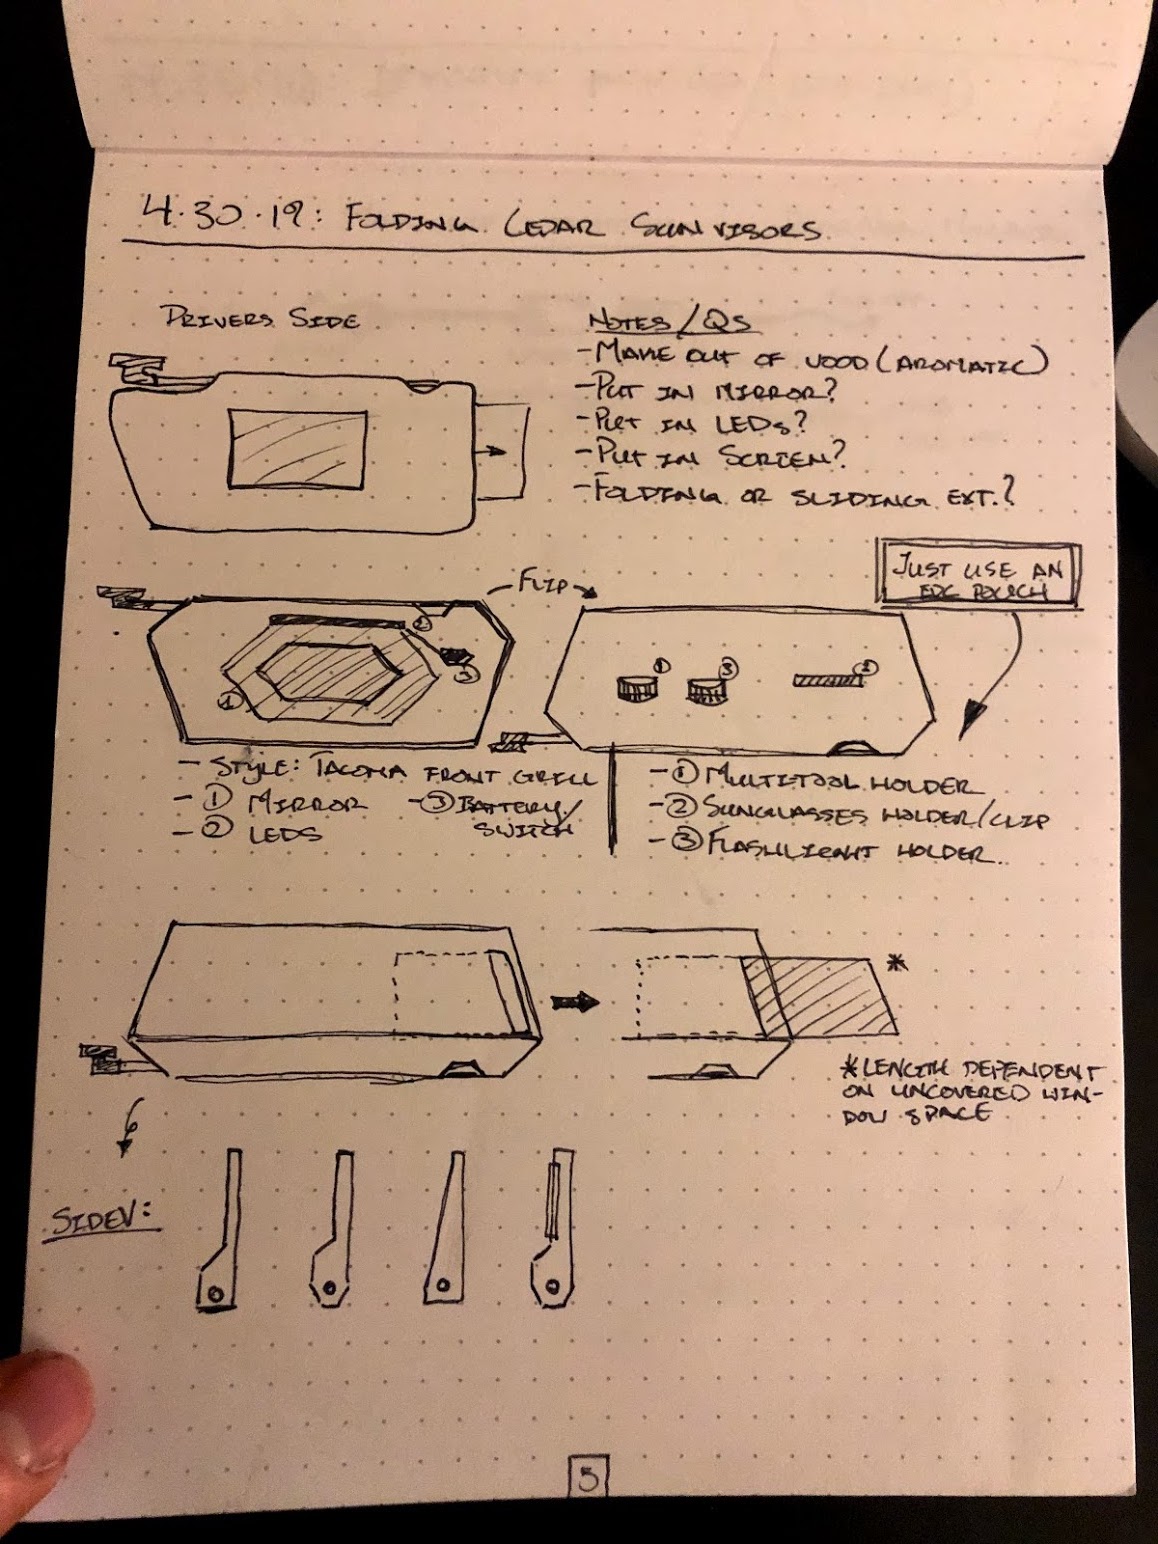 4.30.19: FOLDING CEDAR SUN VISORS
DRIVERS SIDE
NOTES/QS
- MAKE OUT OF WOOD (AROMATIC)
- PUT IN MIRROR?
- PUT IN LEDS?
- PUT IN SCREEN?
- FOLDING OR SLIDING EXT.?
FLIP
JUST USE AN
EDC POUCH
②
③
①
① ③ ②
- STYLE: TACOMA FRONT GRILL
- ① MIRROR - ③ BATTERY/
SWITCH
- ② LEDS
- ① MULTITOOL HOLDER
- ② SUNGLASSES HOLDER/CLIP
- ③ FLASHLIGHT HOLDER
*
* LENGTH DEPENDENT
ON UNCOVERED WIN-
DOW SPACE
SIDEV:
5